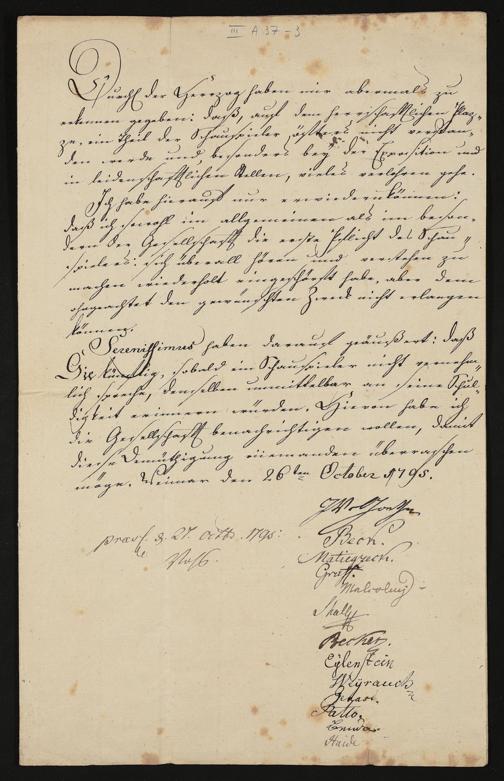 III A 37-3
Durchl der Herrzog haben mir abermals zu
erkennen gegeben: daß, auf dem herrschaftlichen Plaz-
ze, ein Theil der Schauspieler, öfteres nicht verstan-
den werde und, besonders bey der Exposition und
in leidenschaftlichen Stellen, vieles verlohren gehe.
Ich habe hierauf nur erwiedern können:
daß ich sowohl im allgemeinen als im beson-
dern der Gesellschaft die erste Pflicht des Schau-
spielers: sich überall hören und verstehen zu
machen wiederholt eingeschärft habe, aber dem
ohngeachtet den gewünschten Zweck nicht erlangen
können.
Serenissimus haben darauf geäußert: daß
Sie künftig, sobald ein Schauspieler nicht vernehm-
lich spreche, denselben unmittelbar an seine Schul-
digkeit erinnern würden. Hievon habe ich
die Gesellschaft benachrichtigen wollen, damit
diese Demüthigung niemanden überraschen
möge. Weimar den 26ten October 1795.
JWvGoethe
praes. d. 27. Octb. 1795:
Voß.
Beck.
Matiegzeck.
Graff.
Malcolmi
Becker.
Eylenstein
Weyrauch
Gatto.
Haide